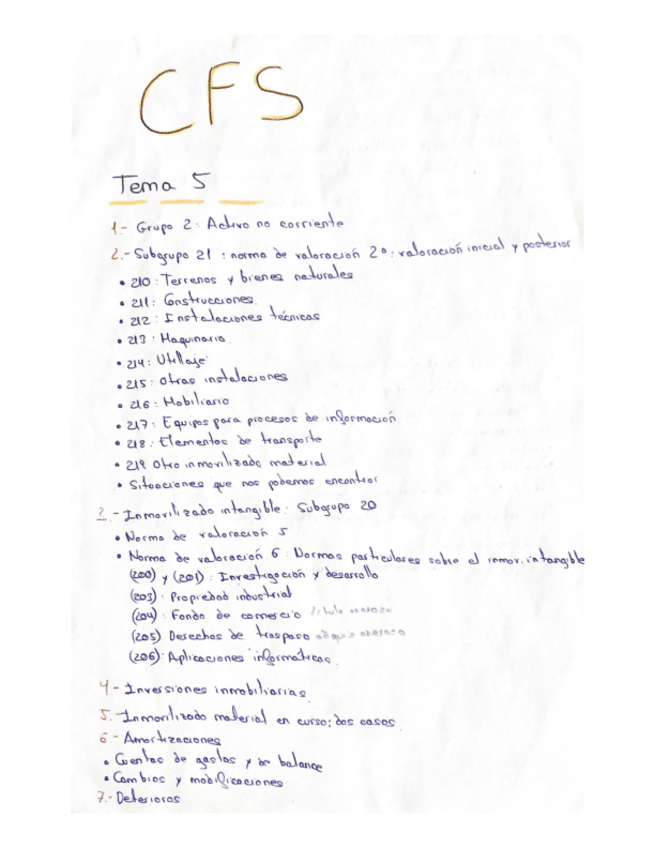 CFS
Tema 5
1.- Grupo 2: Activo no corriente
2.- Subgrupo 21 : norma de valoración 2ª: valoración inicial y posterior
• 210: Terrenos y bienes naturales
• 211: Construcciones.
• 212: Instalaciones técnicas
• 213: Maquinaria.
• 214: Utillaje
• 215: Otras instalaciones
• 216: Mobiliario
• 217: Equipos para procesos de información
• 218: Elementos de transporte
• 219 Otro inmovilizado material
• Situaciones que nos podemos encontrar
3.- Inmovilizado intangible: Subgrupo 20
• Norma de valoración 5
• Norma de valoración 6: Normas particulares sobre el inmov. intangible
(200) y (201): Investigación y desarrollo
(203): Propiedad industrial
(204): Fondo de comercio oneroso
(205) Derechos de traspaso oneroso
(206): Aplicaciones informáticas.
4.- Inversiones inmobiliarias.
5. Inmovilizado material en curso: dos casos
6.- Amortizaciones
• Cuentas de gastos y de balance
• Cambios y modificaciones
7.- Deterioros